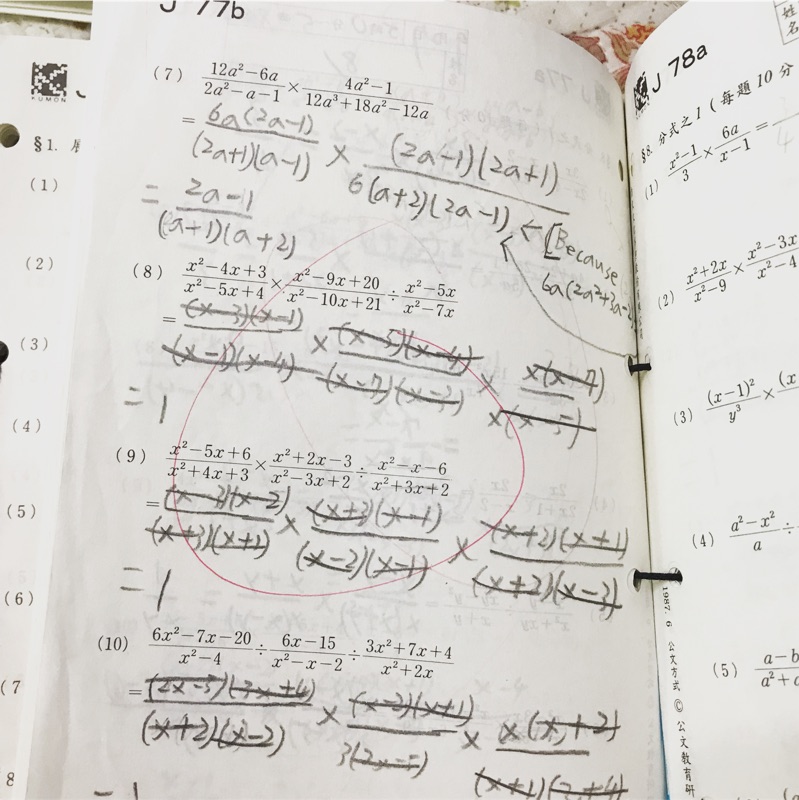 J 77b
(7) (12a²−6a)/(2a²−a−1) × (4a²−1)/(12a³+18a²−12a)
= 6a(2a−1)/(2a+1)(a−1) × (2a−1)(2a+1)/6(a+2)(2a−1) ← [Because
6a(2a²+3a−
= (2a−1)/(a+1)(a+2)
(8) (x²−4x+3)/(x²−5x+4) × (x²−9x+20)/(x²−10x+21) ÷ (x²−5x)/(x²−7x)
= (x−3)(x−1)/(x−1)(x−4) × (x−5)(x−4)/(x−7)(x−3) × x(x−7)/x(x−5)
= 1
(9) (x²−5x+6)/(x²+4x+3) × (x²+2x−3)/(x²−3x+2) ÷ (x²−x−6)/(x²+3x+2)
= (x−3)(x−2)/(x+3)(x+1) × (x+3)(x−1)/(x−2)(x−1) × (x+2)(x+1)/(x+2)(x−3)
= 1
(10) (6x²−7x−20)/(x²−4) ÷ (6x−15)/(x²−x−2) ÷ (3x²+7x+4)/(x²+2x)
= (2x−5)(3x+4)/(x+2)(x−2) × (x−2)(x+1)/3(2x−5) × x(x+2)/(x+1)(3x+4)
KUMON
§1.
(1)
(2)
(3)
(4)
(5)
(6)
(7
8
J 78a
姓名
§8. 分式之1 (每題10分
(1) (x²−1)/3 × 6a/(x−1) =
(2) (x²+2x)/(x²−9) × (x²−3x)/(x²−4)
(3) (x−1)²/y³ × (x
(4) (a²−x²)/a ÷
(5) (a−b)/(a²+a
1987. 6 公文方式 © 公文教育研